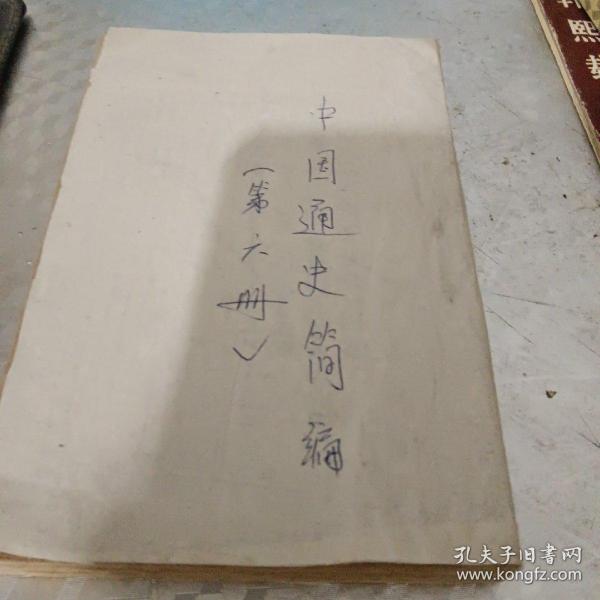 中国通史简编
（第六册）
孔夫子旧书网
www.kongfz.com